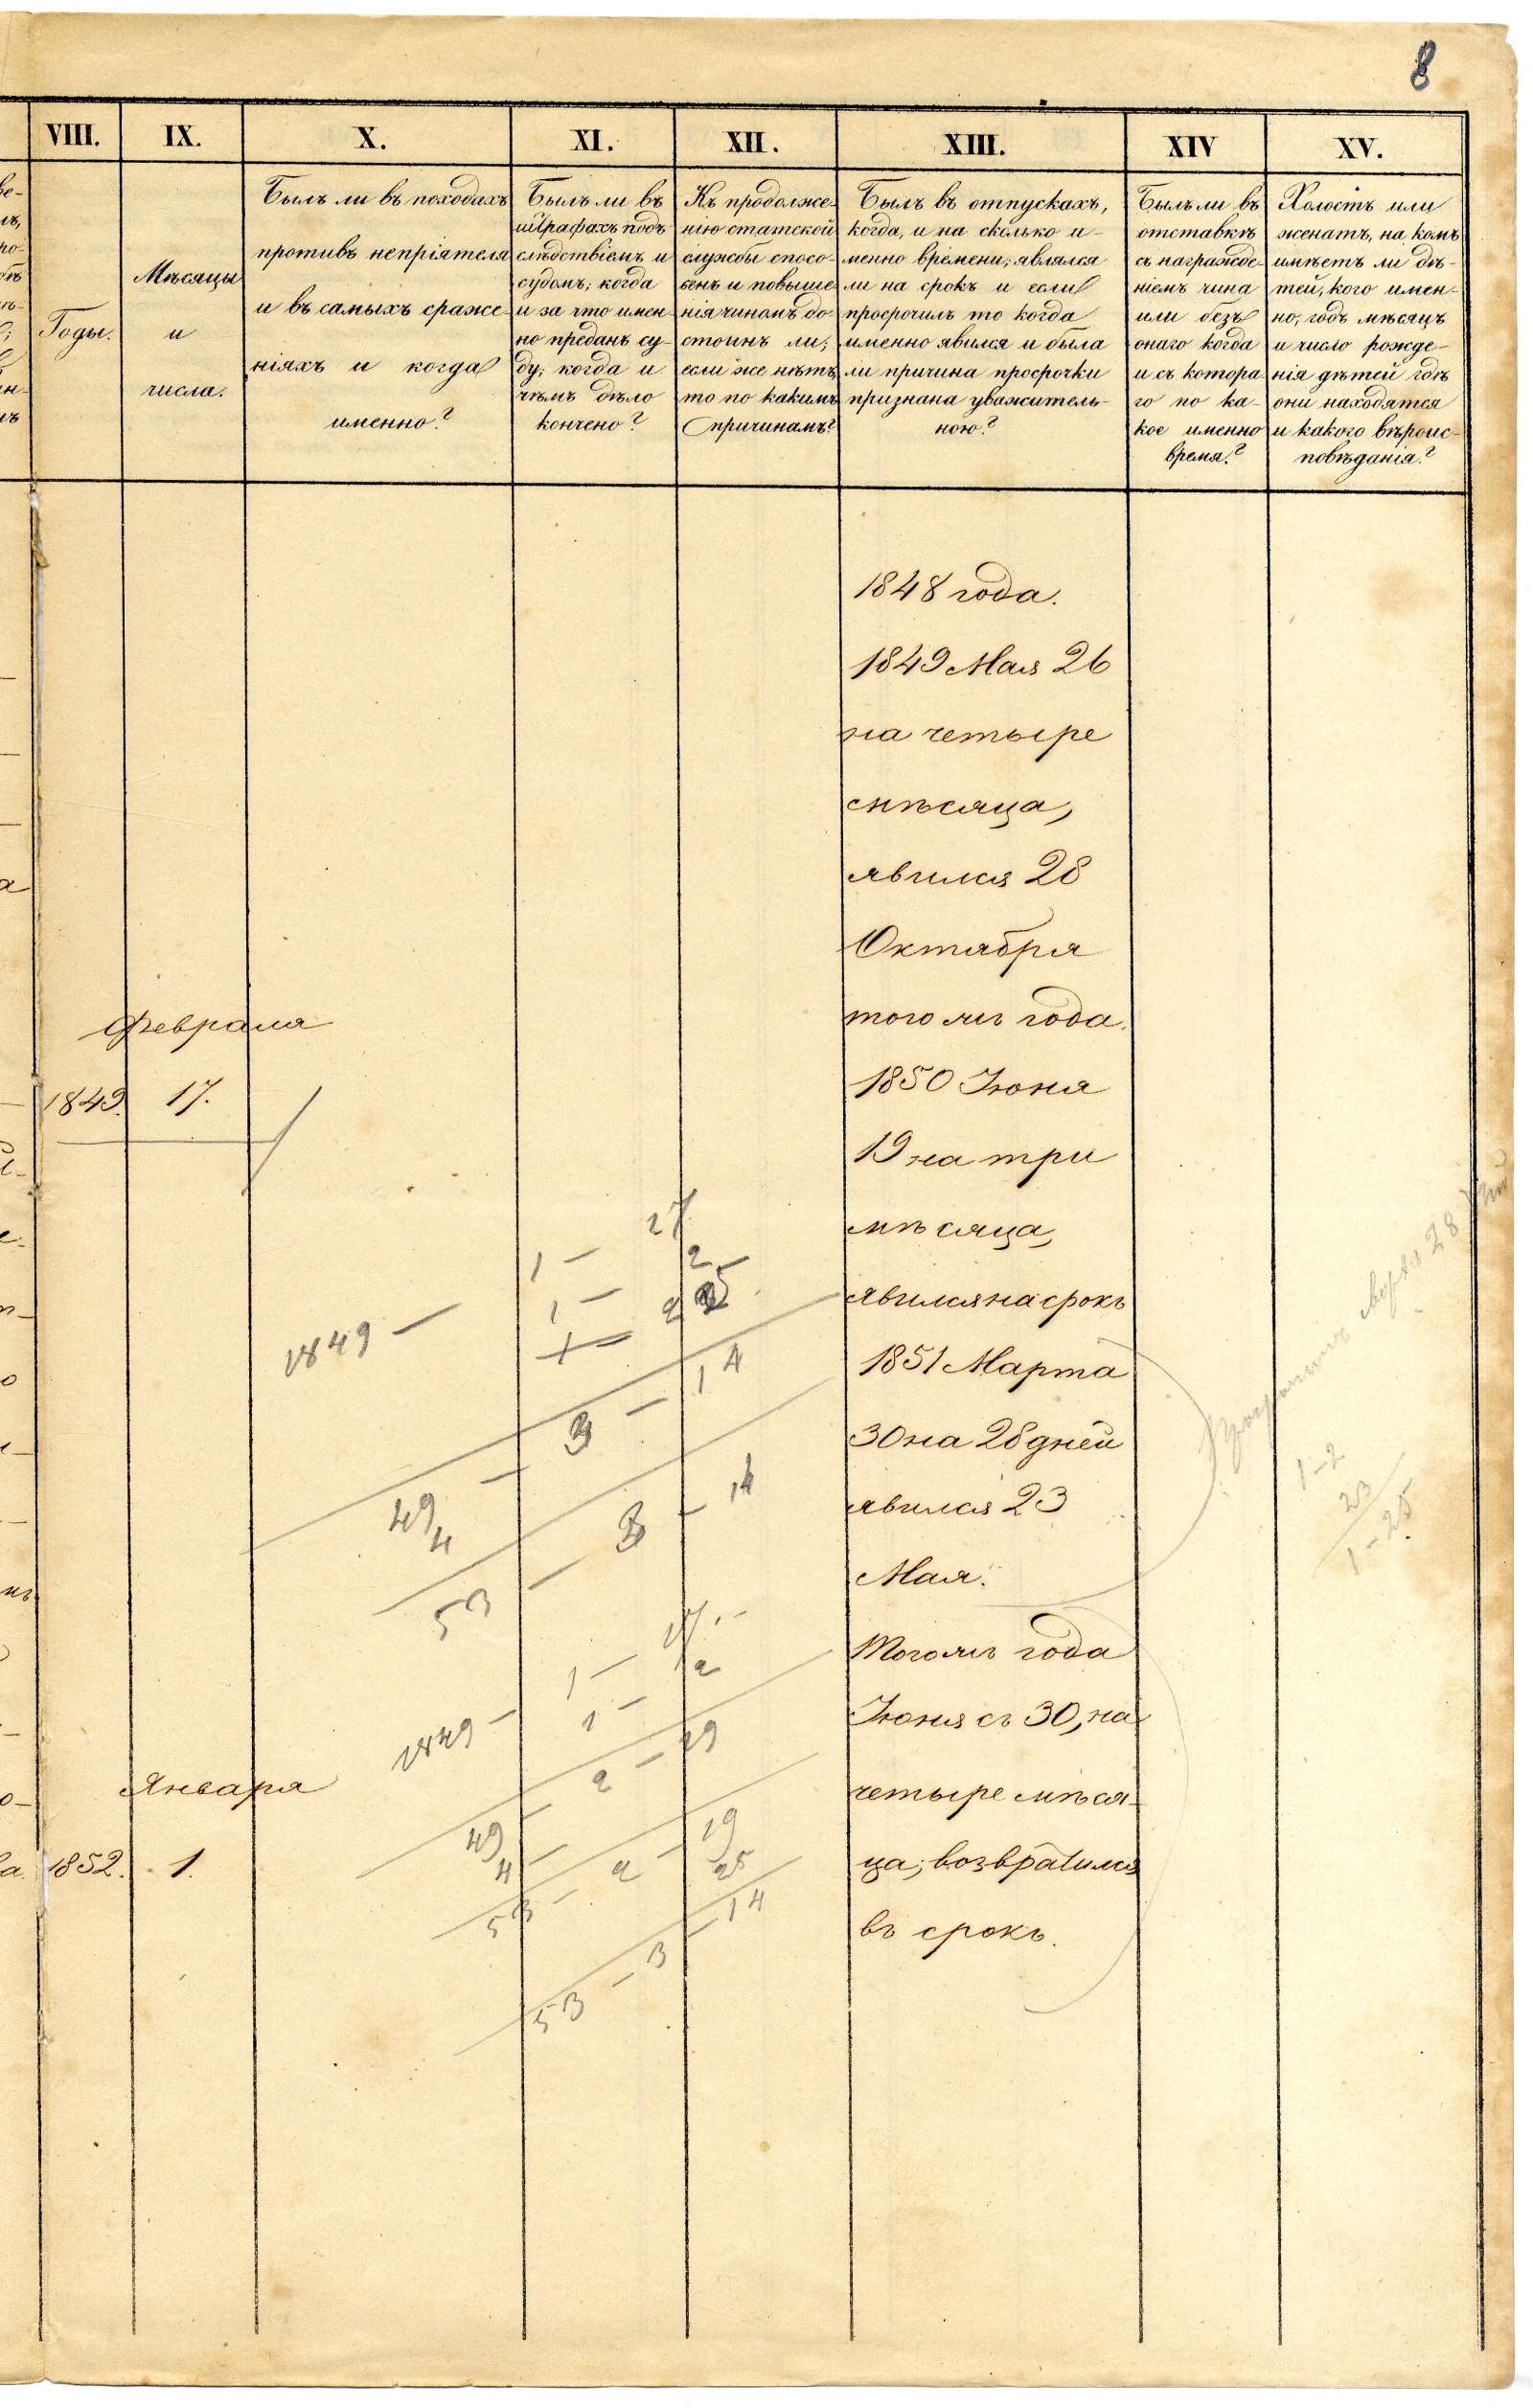 8
VIII.
IX.
X.
XI.
XII.
XIII.
XIV
XV.
Годы.
Мѣсяцы
и
числа.
Былъ ли въ походахъ
противъ непріятеля
и въ самыхъ сраже-
ніяхъ и когда
именно?
Былъ ли въ
штрафахъ подъ
слѣдствіемъ и
судомъ; когда
и за что имен
но преданъ су-
ду; когда и
чѣмъ дѣло
кончено?
Къ продолже-
нію статской
службы спосо-
бенъ и повыше
нія чиномъ до-
стоинъ ли;
если же нѣтъ
то по какимъ
причинамъ?
Былъ въ отпускахъ,
когда, и на сколько и-
менно времени; являлся
ли на срокъ и если
просрочилъ то когда
именно явился и была
ли причина просрочки
признана уважитель-
ною?
Былъ ли въ
отставкѣ
съ награжде-
ніемъ чина
или безъ
онаго когда
и съ котора
го по ка-
кое именно
время?
Холостъ или
женатъ, на комъ
имѣетъ ли дѣ-
тей, кого имен-
но, годъ мѣсяцъ
и число рожде-
нія дѣтей гдѣ
они находятся
и какого вѣроис-
повѣданія?
Февраля
1849. 17.
Января
1852. 1.
1848 года.
1849 Мая 26
на четыре
мѣсяца,
явился 28
Октября
того жъ года.
1850 Іюня
19 на три
мѣсяца,
явился на срокъ
1851 Марта
30 на 28 дней
явился 23
Мая.
Того жъ года
Іюня съ 30, на
четыре мѣся-
ца; возвратился
въ срокъ.
27
1 — 2
1849 — 1 — 25
49 — 3 — 14
4
53 — 3 — 14
17.
1 — 2
1849 — 1 —
49 — 2 — 19
4
53 — 2 — 19
25
53 — 3 — 14
28
1 - 2
23
1 - 25